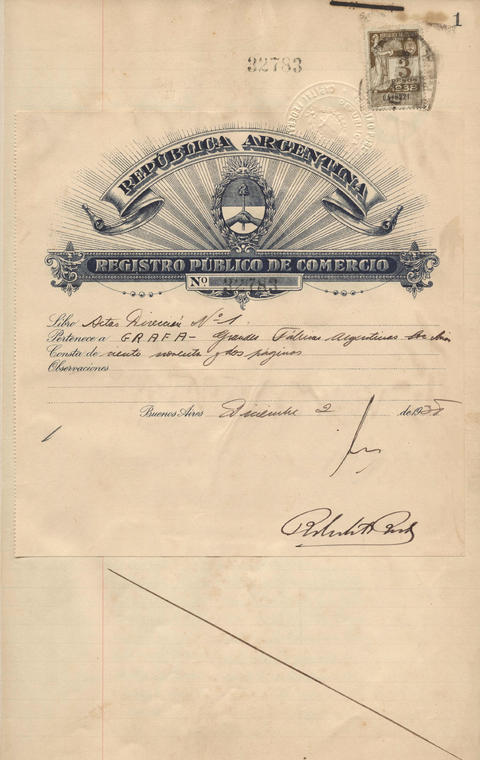 1
32783
3
PESOS
REPÚBLICA ARGENTINA
REGISTRO PÚBLICO DE COMERCIO
Nº 32783
Libro Actas Dirección Nº 1.
Pertenece a GRAFA - Grandes Fábricas Argentinas
Consta de ciento noventa y dos páginas
Observaciones
Buenos Aires Diciembre 2 de 193